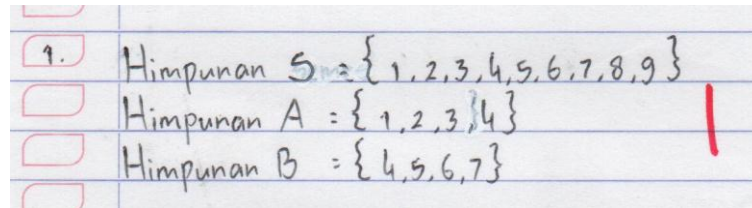 1. Himpunan S = { 1, 2, 3, 4, 5, 6, 7, 8, 9 }
Himpunan A = { 1, 2, 3, 4 }
Himpunan B = { 4, 5, 6, 7 }